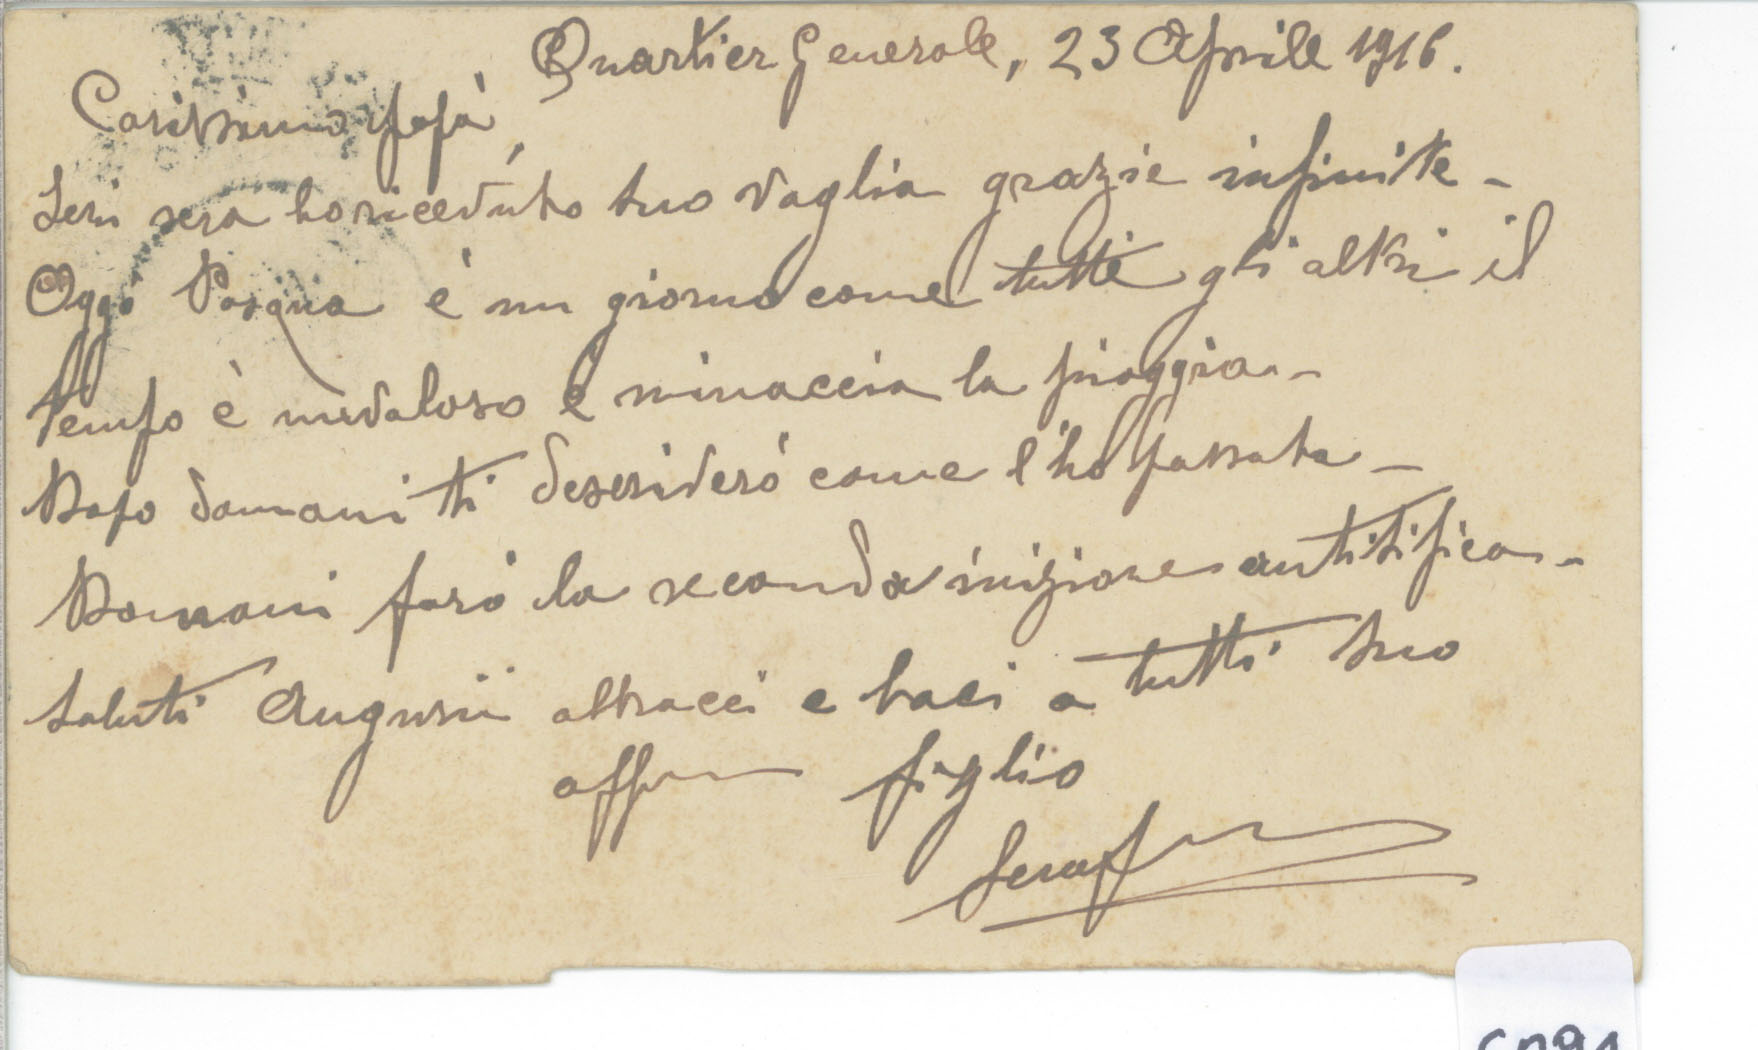 Quartier Generale, 23 Aprile 1916.
Carissimo Papà,
Ieri sera ho ricevuto tuo vaglia grazie infinite -
Oggi Pasqua è un giorno come tutti gli altri il
tempo è nuvoloso e minaccia la pioggia. -
Dopo domani ti descriverò come l'ho passata -
Domani farò la seconda iniezione antitifica. -
Saluti Augurii abbracci e baci a tutti tuo
aff figlio
Seraf